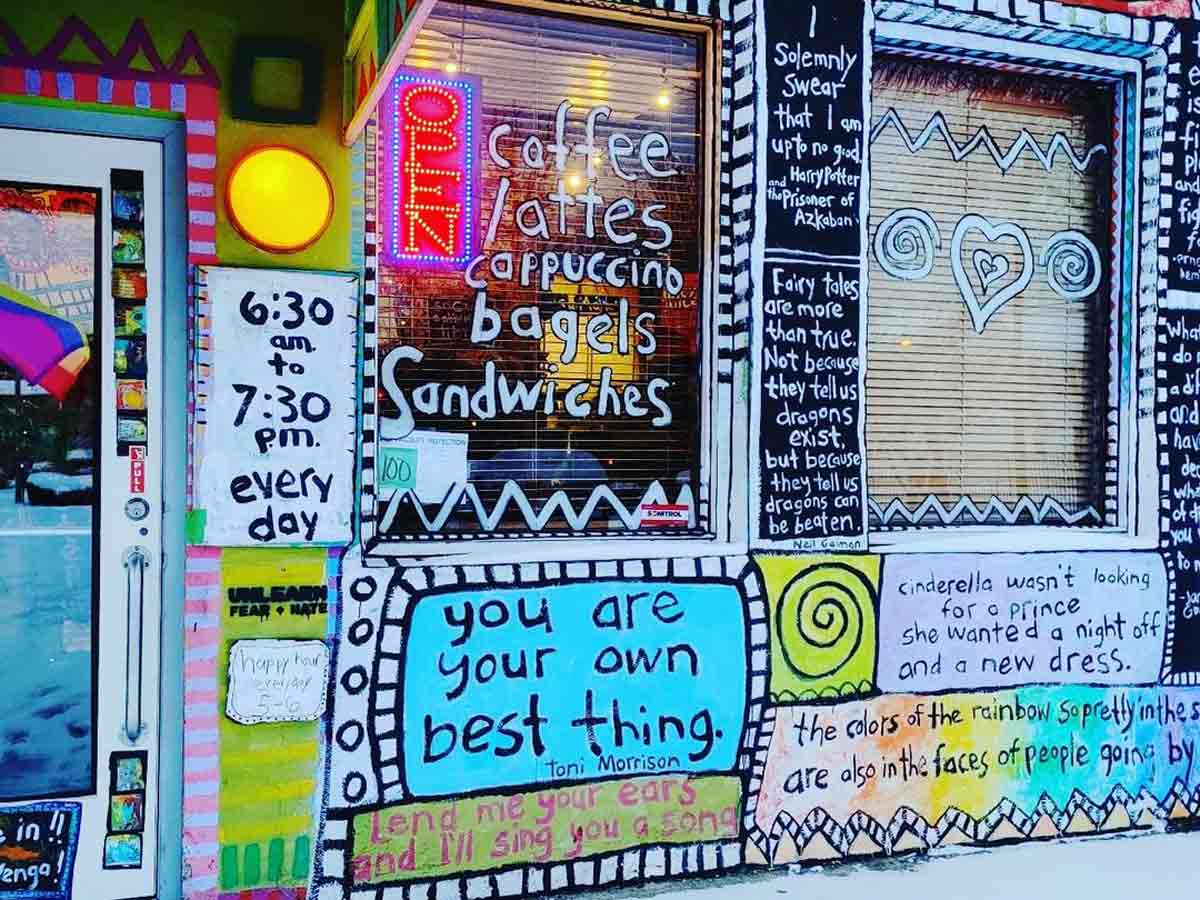 OPEN
coffee
lattes
cappuccino
bagels
Sandwiches
100
SONITROL
6:30
am.
to
7:30
p.m.
every
day
PULL
UNLEARN
FEAR + HATE
happy hour
everyday
5-6
I
Solemnly
Swear
that I am
up to no good.
Harry Potter
and the Prisoner of
Azkaban
Fairy tales
are more
than true.
Not because
they tell us
dragons
exist,
but because
they tell us
dragons can
be beaten.
Neil Gaiman
you are
your own
best thing.
Toni Morrison
Lend me your ears
and I'll sing you a song
cinderella wasn't looking
for a prince
she wanted a night off
and a new dress.
the colors of the rainbow so pretty in the s
are also in the faces of people going by
e in !!
venga!